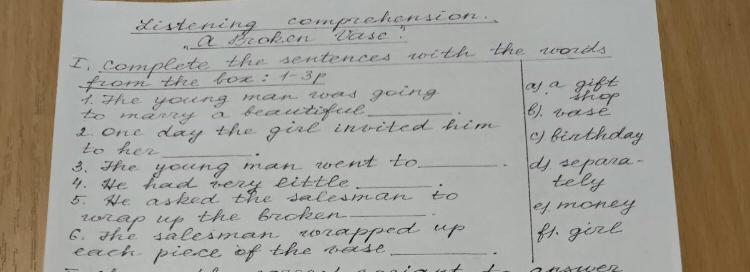 Listening comprehension.
"A Broken Vase".
I. Complete the sentences with the words
from the box: 1-3p
1. The young man was going
to marry a beautiful ______.
2. One day the girl invited him
to her ______.
3. The young man went to ______.
4. He had very little ______.
5. He asked the salesman to
wrap up the broken ______.
6. The salesman wrapped up
each piece of the vase ______.
a) a gift
shop
b). vase
c) birthday
d) separa-
tely
e) money
f). girl
answer